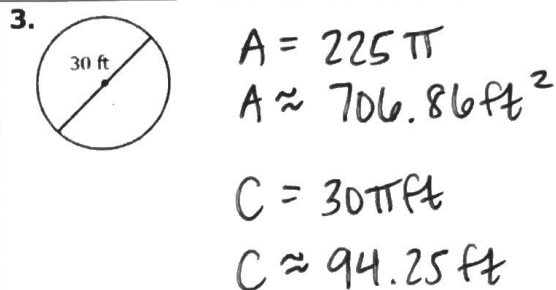 3.
30 ft
A = 225 π
A ≈ 706.86 ft²
C = 30π ft
C ≈ 94.25 ft